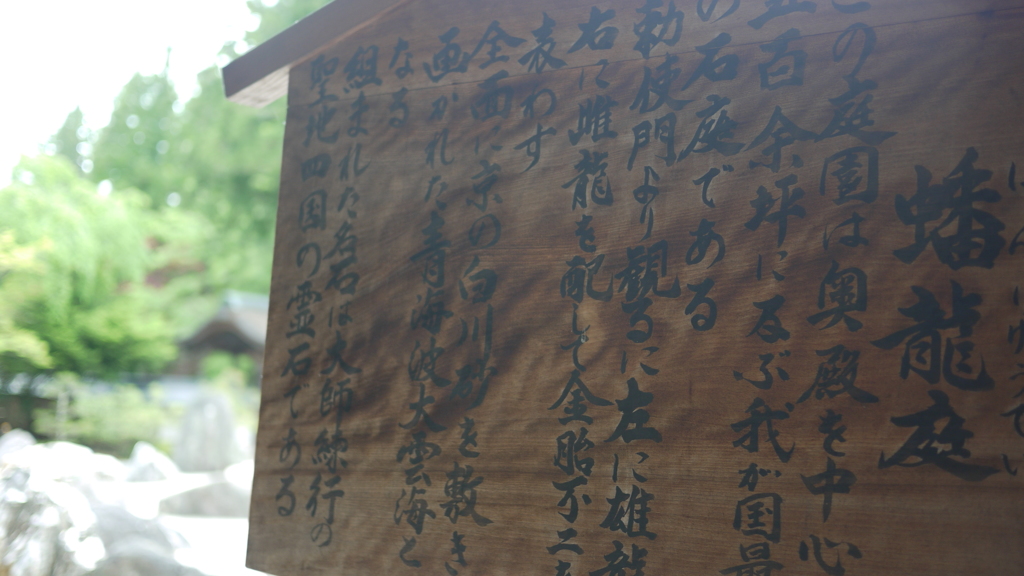 蟠龍庭
この庭園は奥殿を中心
五百余坪に及ぶ我が国最
の石庭である
勅使門より観るに左に雄龍
右に雌龍を配して金胎不二を
表わす
全面に京の白川砂を敷き
画かれた青海波大雲海と
なる
組まれた名石は大師練行の
聖地四国の霊石である